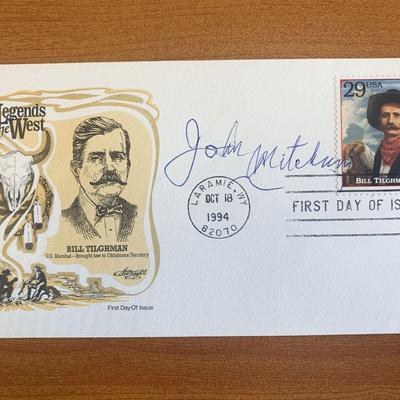 Legends
the West
BILL TILGHMAN
U.S. Marshal – Brought law to Oklahoma Territory
First Day Of Issue
John Mitchum
LARAMIE, WY
OCT 18
1994
82070
29 USA
BILL TILGHM
FIRST DAY OF IS